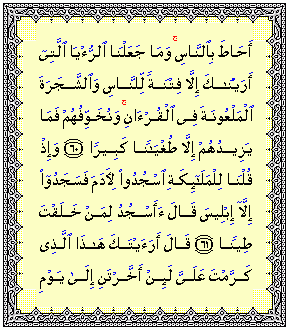 أَحَاطَ بِٱلنَّاسِ ۚ وَمَا جَعَلْنَا ٱلرُّءْيَا ٱلَّتِىٓ
أَرَيْنَـٰكَ إِلَّا فِتْنَةً لِّلنَّاسِ وَٱلشَّجَرَةَ
ٱلْمَلْعُونَةَ فِى ٱلْقُرْءَانِ ۚ وَنُخَوِّفُهُمْ فَمَا
يَزِيدُهُمْ إِلَّا طُغْيَـٰنًا كَبِيرًا ٦٠ وَإِذْ
قُلْنَا لِلْمَلَـٰٓئِكَةِ ٱسْجُدُوا۟ لِـَٔادَمَ فَسَجَدُوٓا۟
إِلَّآ إِبْلِيسَ قَالَ ءَأَسْجُدُ لِمَنْ خَلَقْتَ
طِينًا ٦١ قَالَ أَرَءَيْتَكَ هَـٰذَا ٱلَّذِى
كَرَّمْتَ عَلَىَّ لَئِنْ أَخَّرْتَنِ إِلَىٰ يَوْمِ